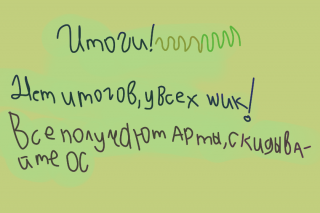 Итоги!
Нет итогов, у всех шик!
Все получают Арты, скидыва-
йте ОС